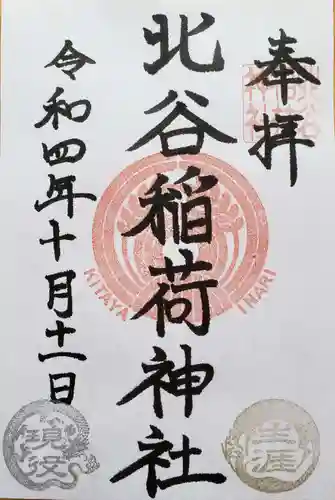 奉拝
北谷稲荷神社
KITAYA INARI
令和四年十月十一日
生涯
現役